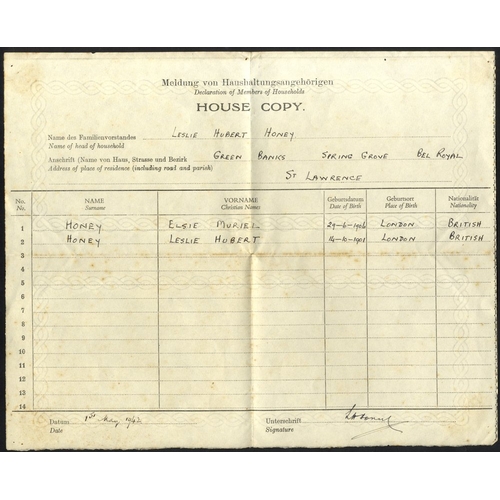 Meldung von Haushaltungsangehörigen
Declaration of Members of Households
HOUSE COPY.
Name des Familienvorstandes LESLIE HUBERT HONEY
Name of head of household
Anschrift (Name von Haus, Strasse und Bezirk GREEN BANKS SPRING GROVE BEL ROYAL
Address of place of residence (including road and parish) ST LAWRENCE
No. NAME VORNAME Geburtsdatum Geburtsort Nationalität
No. Surname Christian Names Date of Birth Place of Birth Nationality
1 HONEY ELSIE MURIEL 29-6-1906 LONDON BRITISH
2 HONEY LESLIE HUBERT 14-10-1901 LONDON BRITISH
3
4
5
6
7
8
9
10
11
12
13
14
Datum 1st May 1942 Unterschrift
Date Signature